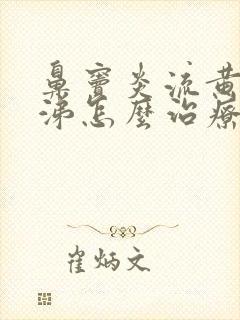 鼻窦炎流黄
涕怎麽治療
崔炳文